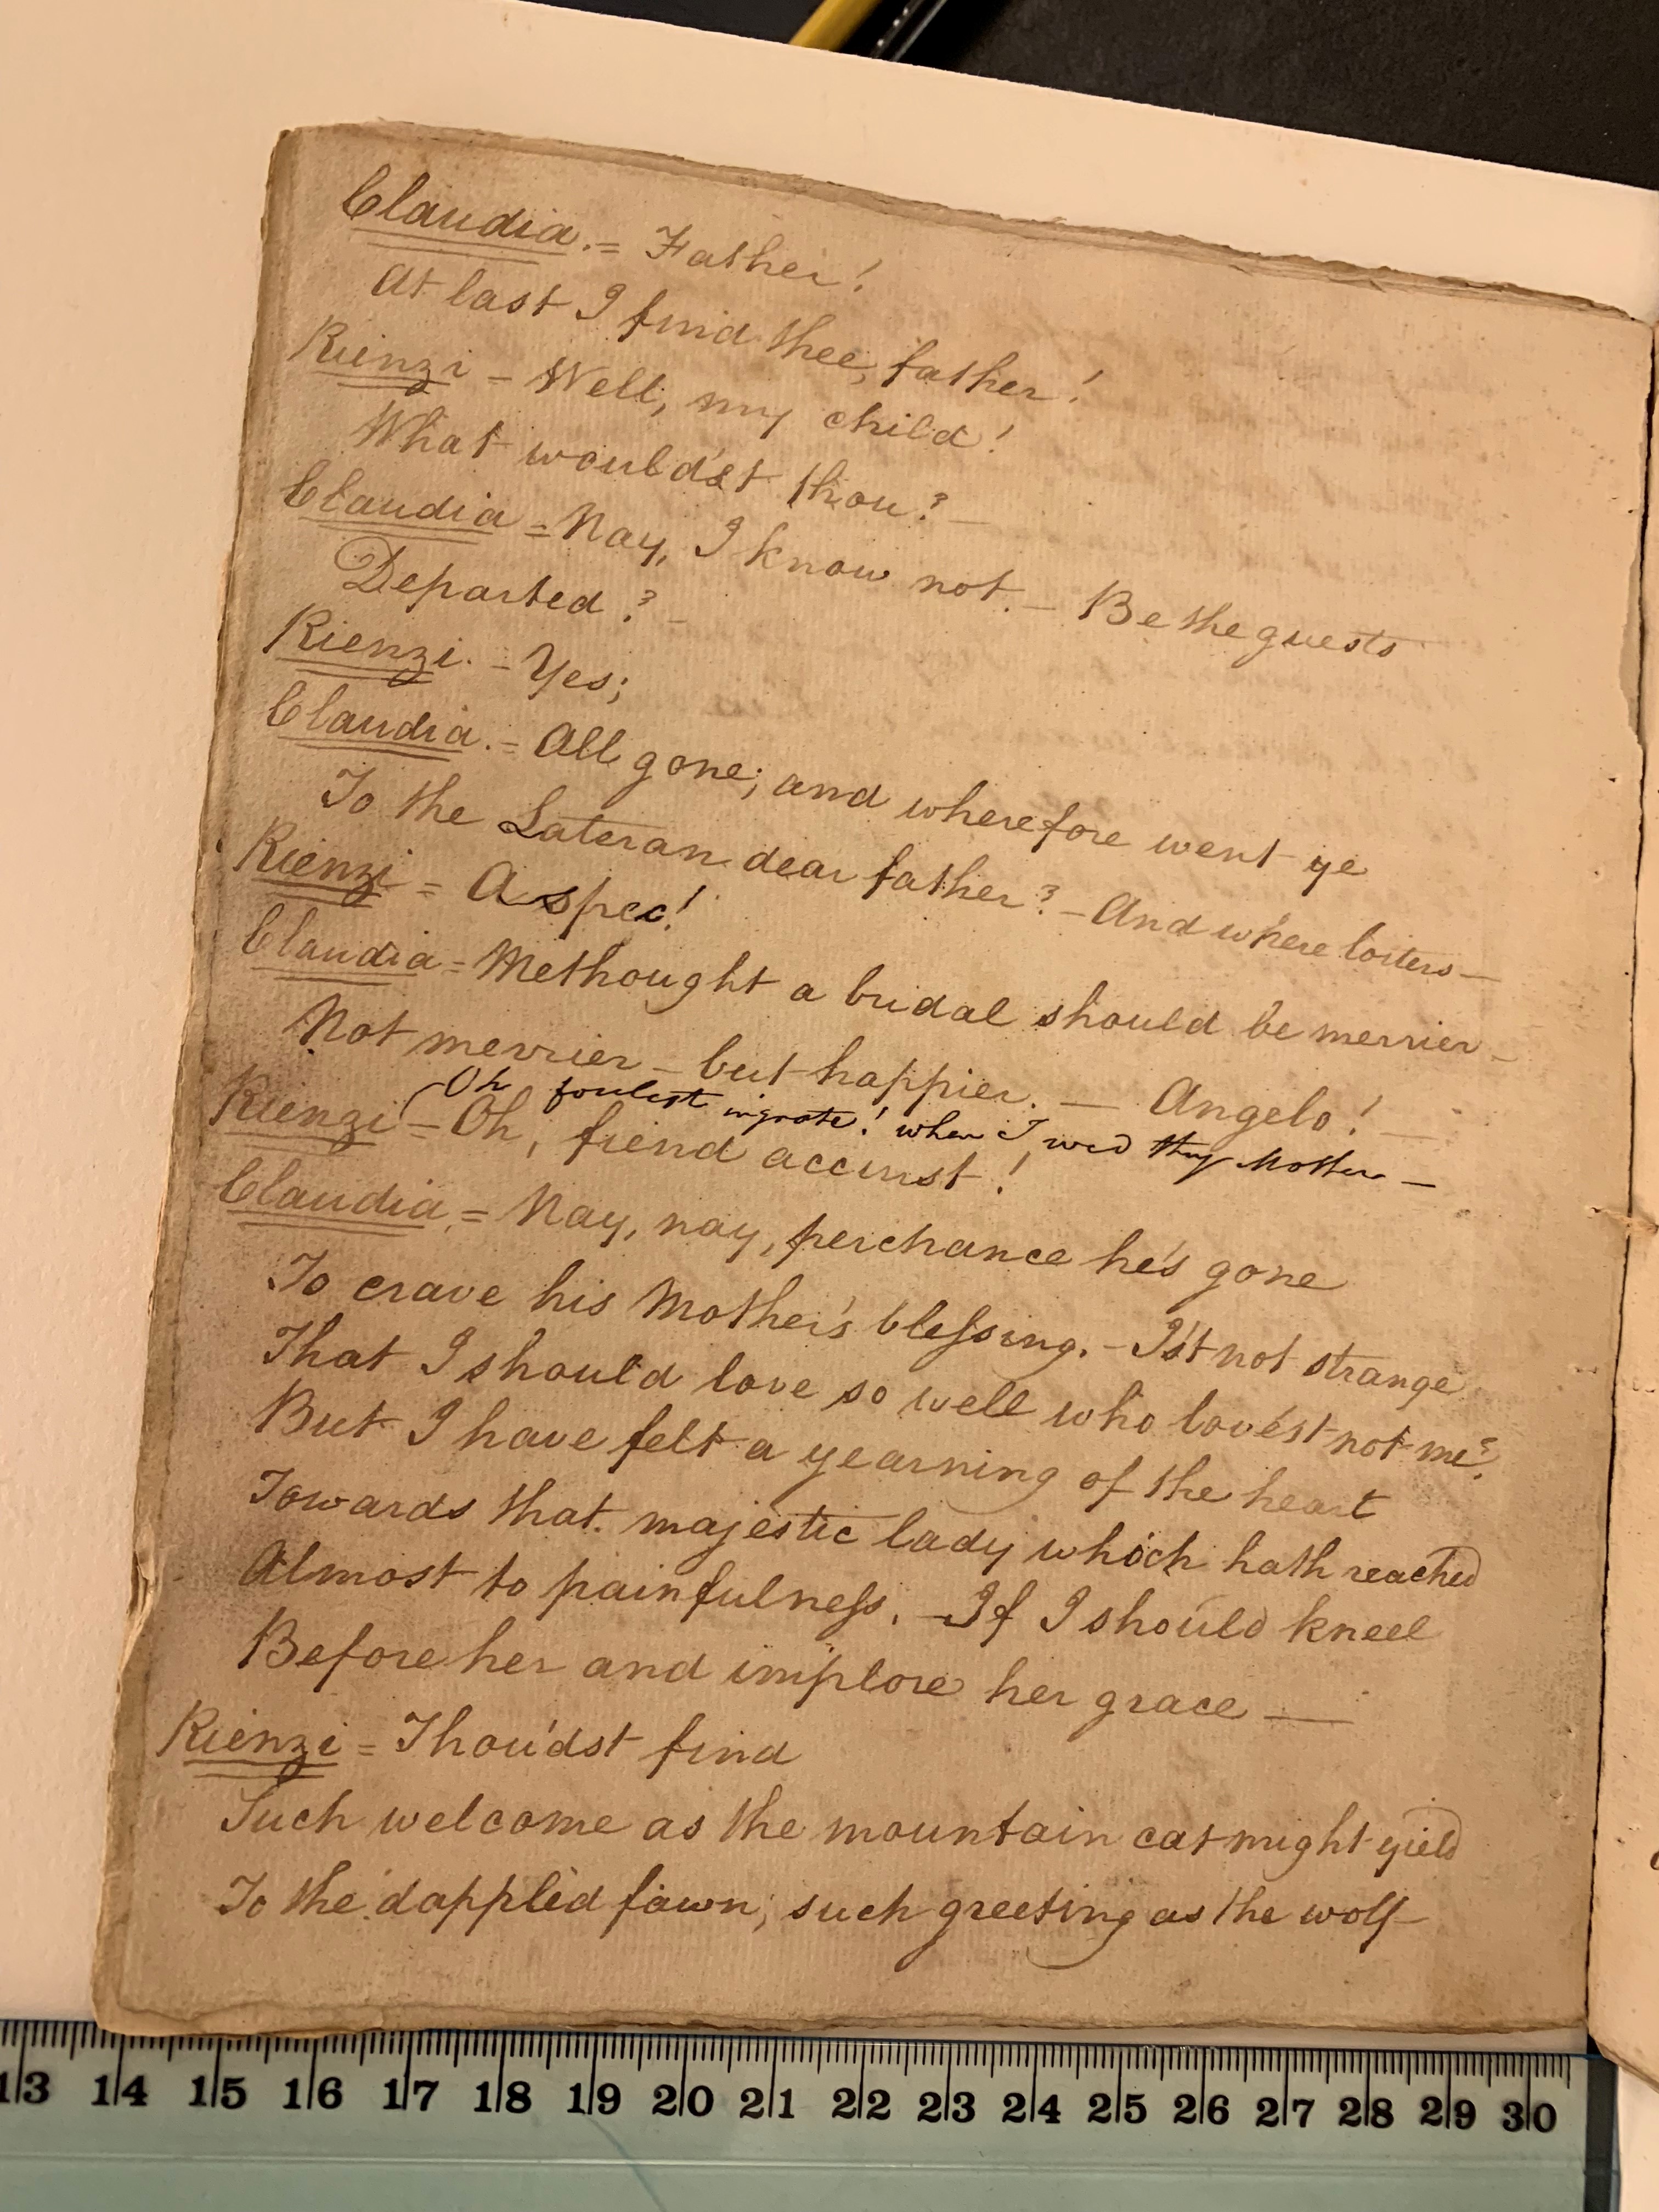 Claudia. = Father!
At last I find thee, father!
Rienzi - Well, my child!
What would'st thou? -
Claudia = Nay, I know not. - Be the guests
Departed? -
Rienzi. - Yes;
Claudia. = All gone; and wherefore went ye
To the Lateran dear father? - And where loiters -
Rienzi = A spec!
Claudia = Methought a bridal should be merrier -
Not merrier - but happier. - Angelo! -
(Oh foulest ingrate! when I wed thy Mother -
Rienzi = Oh, fiend accurst!
Claudia. = Nay, nay, perchance he's gone
To crave his Mother's blessing. - Is't not strange
That I should love so well who lov'st not me?
But I have felt a yearning of the heart
Towards that majestic lady which hath reached
Almost to painfulness. - If I should kneel
Before her and implore her grace —
Rienzi = Thou'dst find
Such welcome as the mountain cat might yield
To the dappled fawn; such greeting as the wolf
13 14 15 16 17 18 19 20 21 22 23 24 25 26 27 28 29 30